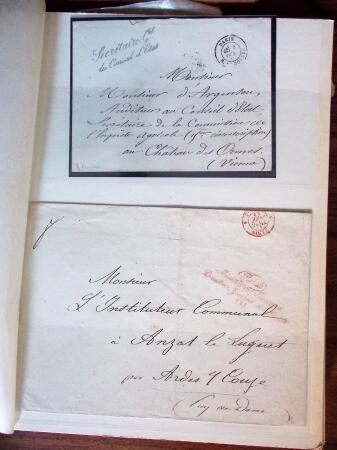 Secrétaire Gal
du Conseil d'Etat
PARIS
Monsieur
Monsieur d'Argenson
Auditeur au Conseil d'Etat
Secrétaire de la Commission de
l'Enquête agricole
au Château des Ormes
(Vienne)
PARIS
Monsieur
L'Instituteur Communal
à Anzat le Luguet
par Ardes s/ Couze
(Puy de Dome)